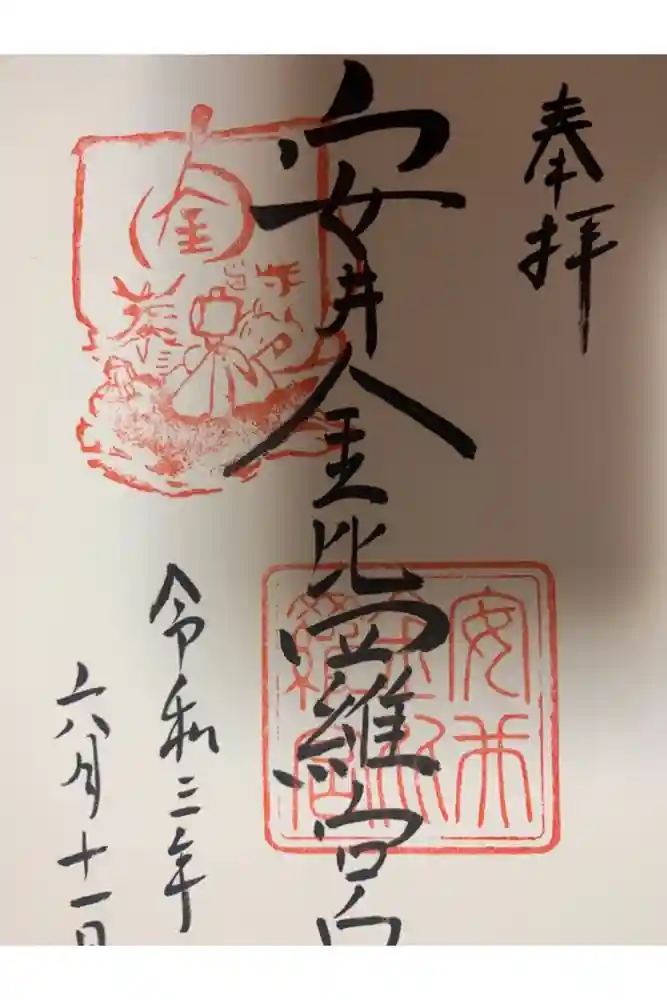 奉拝
安井金比羅宮
令和三年
六月十一日
金
安井